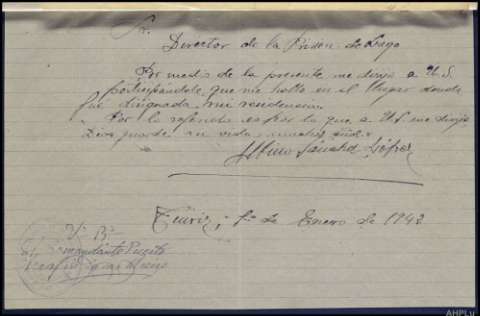 Sr.
Director de la Prisión de Lugo
Por medio de la presente me dirijo a U.S.
participándole que me hallo en el lugar donde
fué disignada mi residencia.
Por lo referido es por lo que a U.S. me dirijo
Dios guarde su vida muchos años.
Albino Sánchez López
1º de Enero de 1942
Vº Bº
Comandante Puesto
AHPLu